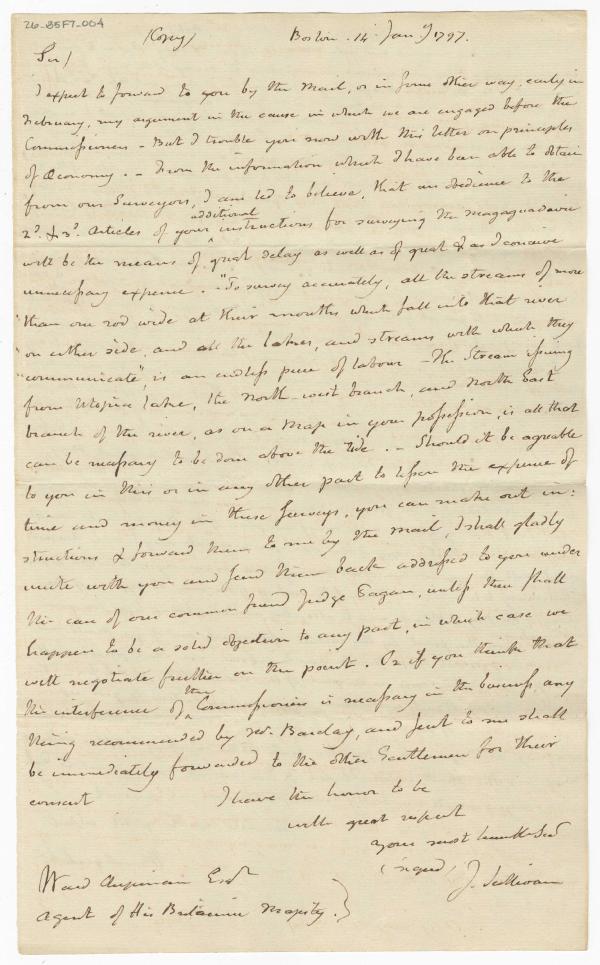 26-85F7-004
(Copy) Boston. 14 Jany 1797.
Sir)
I expect to forward to you by the Mail, or in some other way, early in
February, my argument in the cause in which we are engaged before the
Commissioners – But I trouble you now with this letter on principles
of Œconomy. – From the information which I have been able to obtain
from our Surveyors, I am led to believe, that an obedience to the
2d. & 3d. Articles of your additional instructions for surveying the Magaguadavic
will be the means of great delay as well as of great & as I conceive
unnecessary expence. – "To survey accurately, all the streams of more
"than one rod wide at their mouths which fall into that river
"on either side, and all the lakes, and streams with which they
"communicate", is an endless piece of labour – The Stream issuing
from Utopia lake, the North-west branch, and North East
branch of the river, as on a Map in your possession, is all that
can be necessary to be done above the tide. – Should it be agreable
to you in this or in any other part to lessen the expence of
time and money in these Surveys, you can make out in:
structions & forward them to me by the mail, I shall gladly
unite with you and send them back addressed to you under
the care of our common friend Judge Cagan, unless there shall
happen to be a solid objection to any part, in which case we
will negotiate further on the point. Or if you think that
the interference of the Commissioners is necessary in the business any
thing recommended by Mr. Barclay, and sent to me shall
be immediately forwarded to the other Gentlemen for their
consent I have the honor to be
with great respect
your most humble Servt
(signed) J. Sullivan
Ward Chipman Esqr
Agent of His Britannic Majesty. }